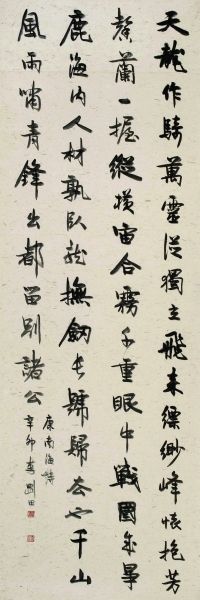 天龍作騎萬靈從獨立飛來縹緲峰懷抱芳
馨蘭一握縱橫宙合霧千重眼中戰國成爭
鹿海內人材孰臥龍撫劍長號歸去也千山
風雨嘯青鋒出都留別諸公
康南海詩
辛卯春